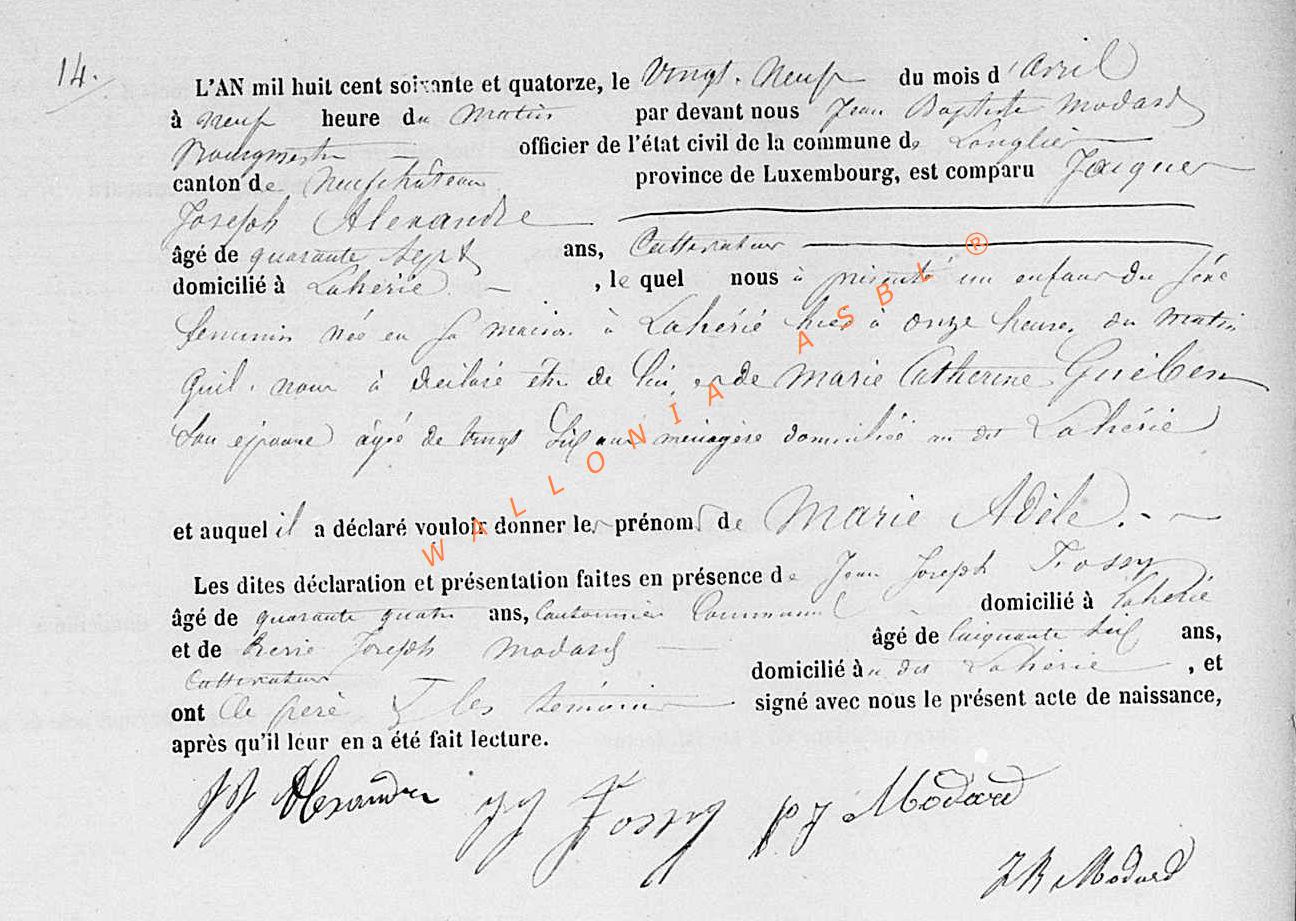 14.
L'AN mil huit cent soixante et quatorze, le Vingt-Neuf du mois d'Avril
à neuf heure du matin par devant nous Jean Baptiste Modard
Bourgmestre officier de l'état civil de la commune de Longlier
canton de Neufchâteau province de Luxembourg, est comparu Jacques
Joseph Alexandre
âgé de quarante sept ans, Cultivateur
domicilié à Lahérie, le quel nous à présenté un enfant du sexe
feminin née en sa maison à Lahérié hier à onze heures du matin
quil nous à déclaré être de lui et de Marie Catherine Guiben
son épouse âgée de vingt six ans ménagère domiciliée au dit Lahérié
et auquel il a déclaré vouloir donner les prénoms de Marie Adèle.
Les dites déclaration et présentation faites en présence de Jean Joseph Fossy
âgé de quarante quatre ans, Cantonnier Communal domicilié à Lahérié
et de Pierre Joseph Modard âgé de cinquante six ans,
Cultivateur domicilié à u dit Lahérie, et
ont le père & les témoins signé avec nous le présent acte de naissance,
après qu'il leur en a été fait lecture.
JJ Alexandre JJ Fossy PJ Modard
JB Modard
WALLONIA ASBL ®